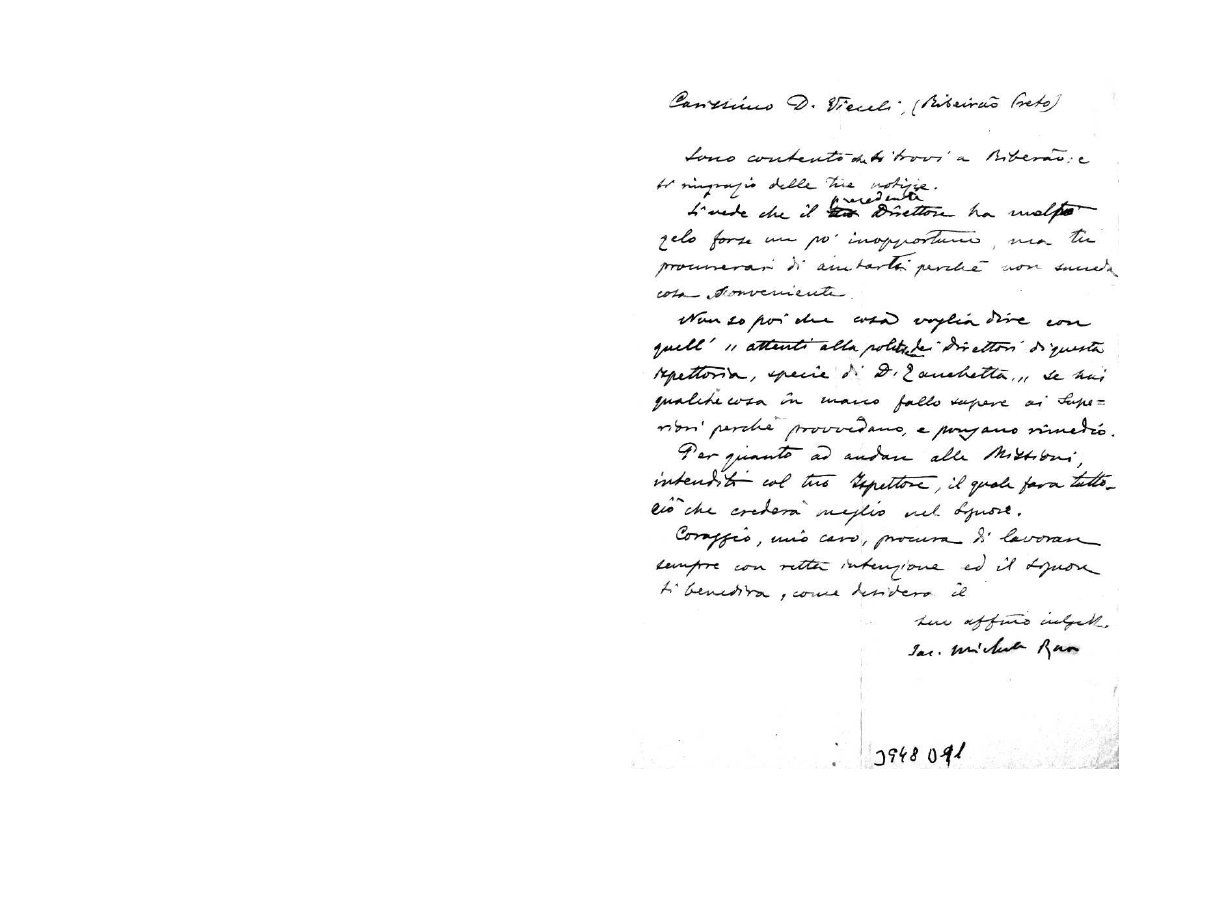 Carissimo D. Vieceli, (Ribeirão Preto)
Sono contento che ti trovi a Riberão: e
ti ringrazio delle tue notizie.
precedente
Si vede che il Direttore ha molto
zelo forse un po' inopportuno, ma tu
procurerai di aiutarlo perchè non succeda
cosa sconveniente.
Non so poi che cosa voglia dire con
quell' „ attenti alla politica dei Direttori di questa
Ispettoria, specie di D. Zanchetta „ se hai
qualche cosa in mano fallo sapere ai Supe=
riori perchè provvedano, e pongano rimedio.
Per quanto ad andare alle Missioni,
intenditi col tuo Ispettore, il quale farà tutto
ciò che crederà meglio nel Signore.
Coraggio, mio caro, procura di lavorare
sempre con retta intenzione ed il Signore
ti benedirà, come desidera il
tuo affmo in
Sac. Michele Rua
3948 D91